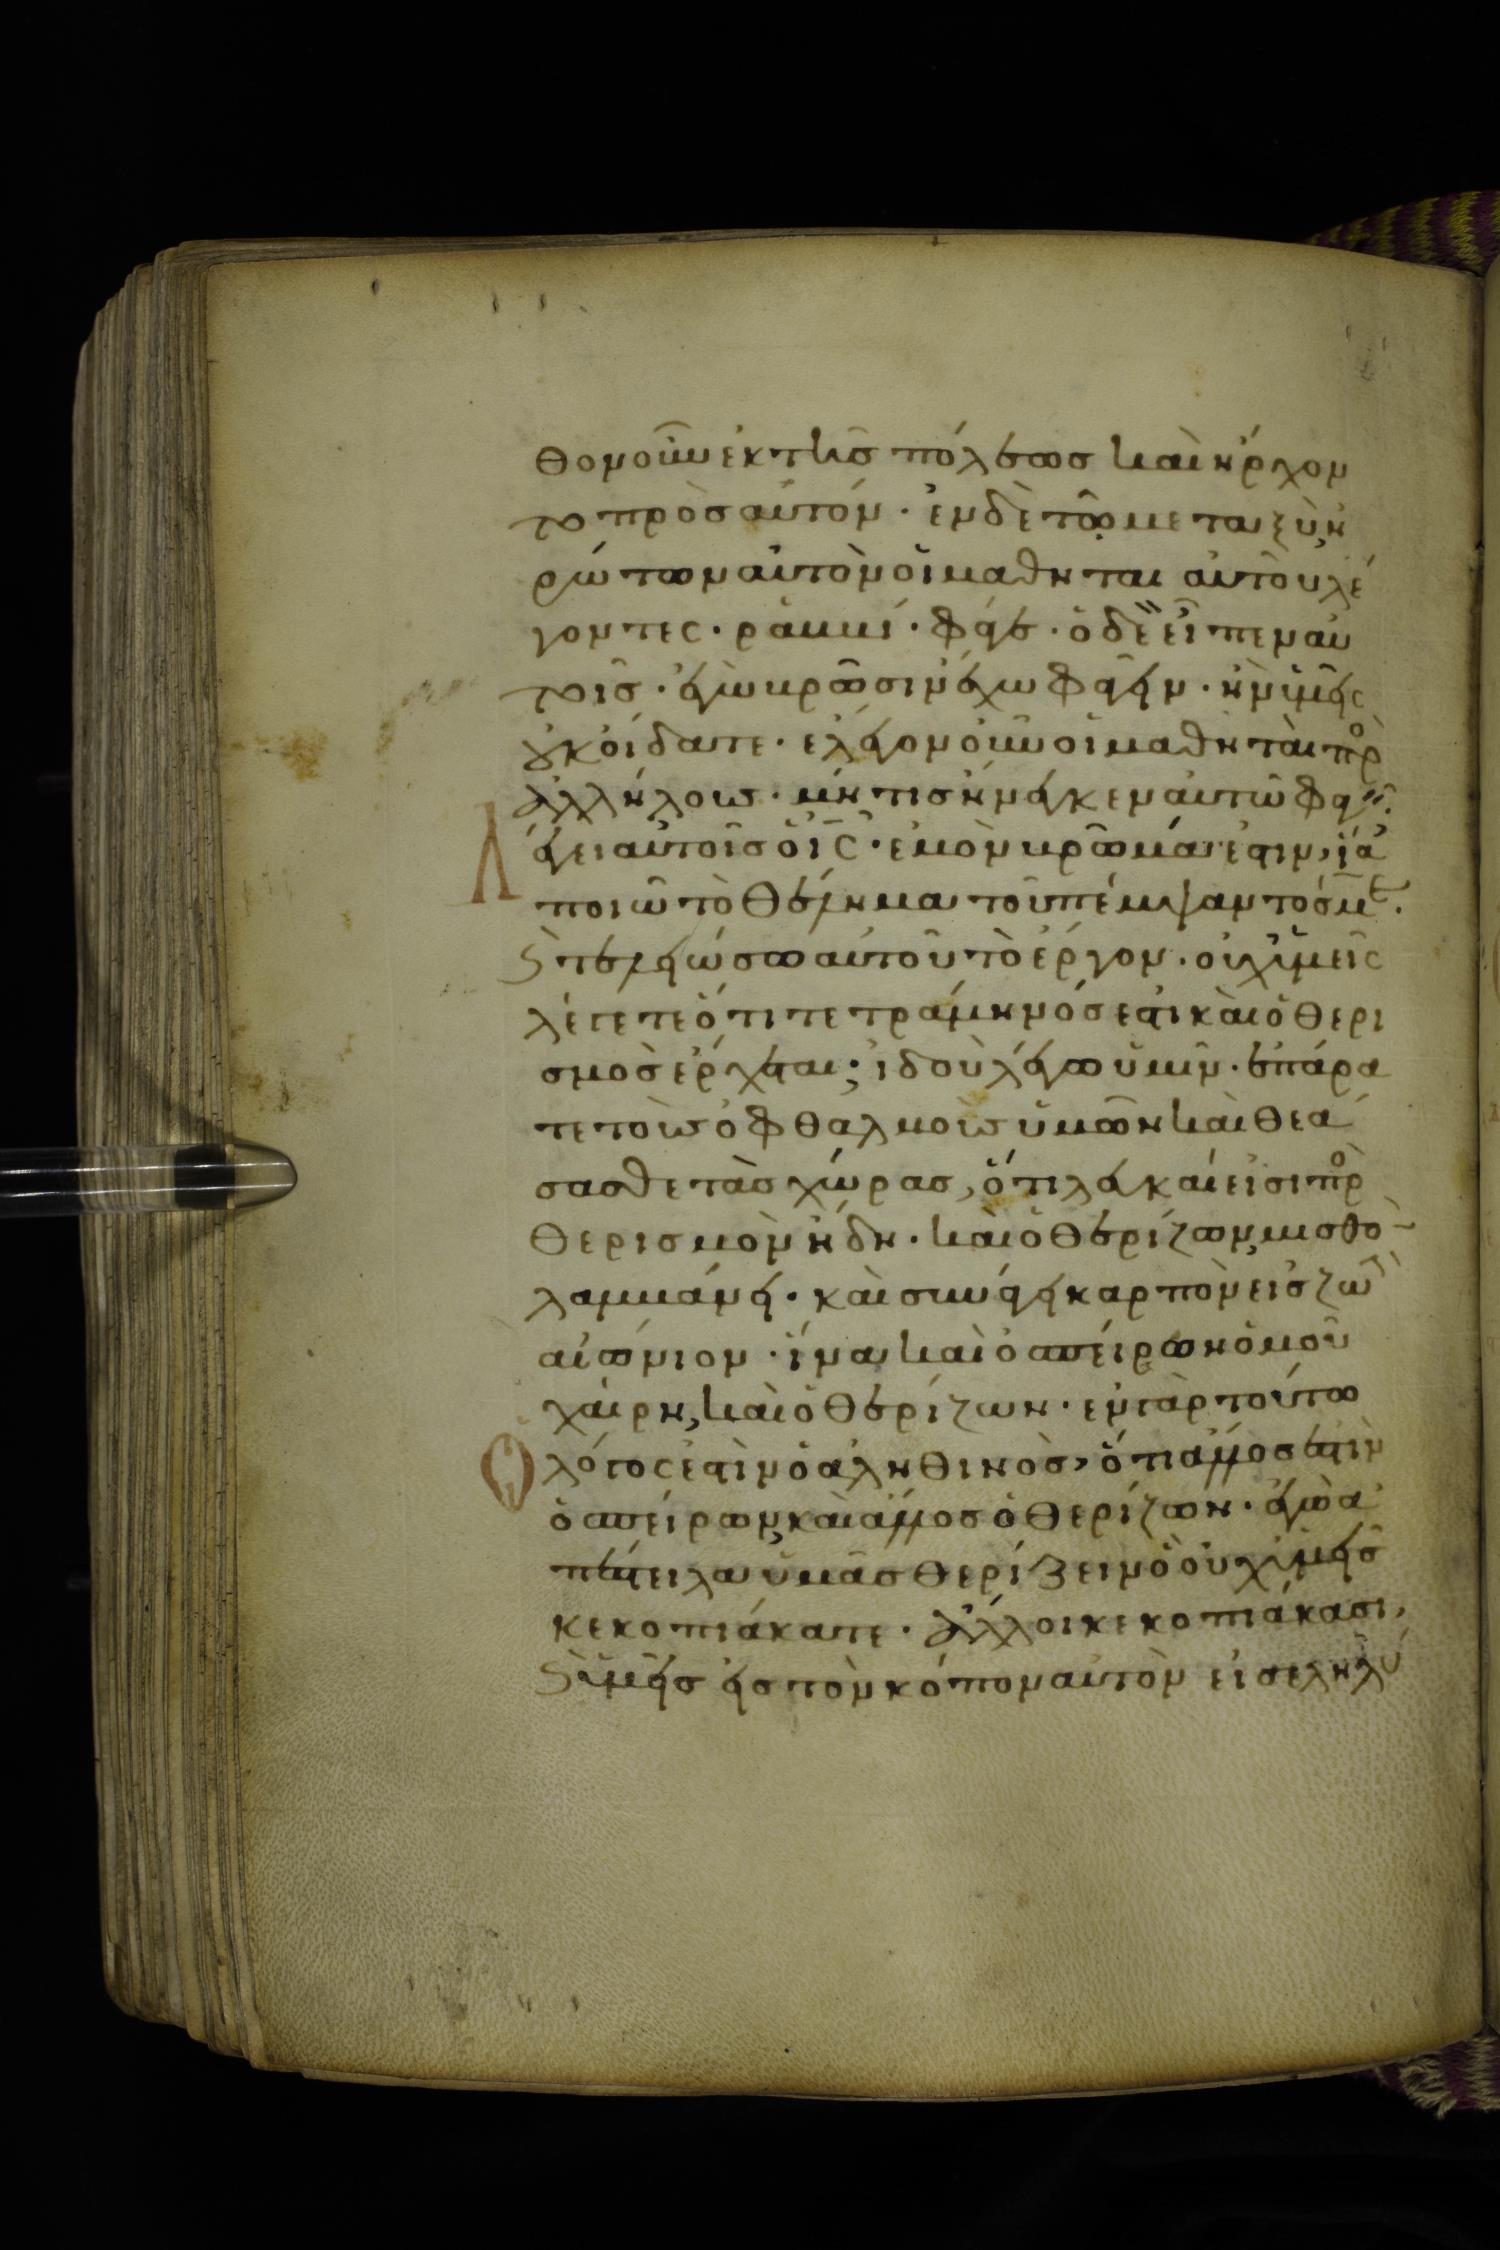 θον οὖν ἐκ τῆς πόλεως καὶ ἤρχον
το πρὸς αὐτόν · ἐν δὲ τῶ μεταξὺ ἠ
ρώτων αὐτὸν οἱ μαθηται αὐτοῦ λέ
γοντες · ραββί · φάγε · ὁ δὲ εἶπεν αὐ
τοῖς · ἐγὼ βρῶσιν ἔχω φαγεῖν · ἣν ὑμεῖς
ουκ οἴδατε · ελεγον οὖν οἱ μαθηταὶ πρὸ
ἀλλήλους · μή τις ἤνεγκεν αὐτῶ φαγ
Λέγει αὐτοῖς ὁ ἰς · ἐμὸν βρῶμά ἐστιν, ἵνα
ποιῶ τὸ θέλημα τοῦ πέμψαντός με.
καὶ τελειώσω αὐτοῦ τὸ ἔργον · οὐχ ὑμεῖς
λέγετε ὅτι τετράμηνός ἐστι καὶ ὁ θερι
σμὸς ἔρχεται; ἰδοὺ λέγω ὑμῖν · ἐπάρα
τε τοὺς ὀφθαλμοὺς ὑμῶν καὶ θεά
σασθε τὰς χώρας, ὅτι λευκαί εἰσι πρὸ
θερισμὸν ἤδη · καὶ ὁ θερίζων, μισθὸ
λαμβάνει · καὶ συνάγει καρπὸν εἰς ζωὴ
αἰώνιον · ἵνα καὶ ὁ σπείρων ὁμοῦ
χαίρη, καὶ ὁ θερίζων · εν γὰρ τούτω
Ὁ λόγος ἐστὶν ὁ ἀληθινὸς, ὅτι ἄλλος ἐστὶν
ὁ σπείρων, καὶ ἄλλος ὁ θερίζων · ἐγὼ ἀ
πέστειλα ὑμᾶς θερίζειν ὃ οὐχ ὑμεῖς
κεκοπιάκατε · ἄλλοι κεκοπιάκασι,
καὶ ὑμεῖς εἰς τὸν κόπον αὐτῶν εἰσεληλύ